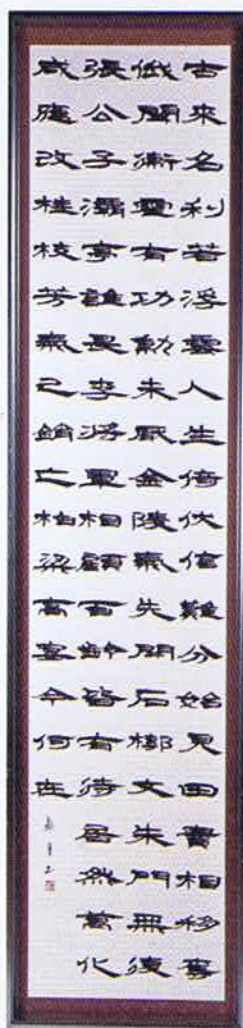 古來名利若浮雲人生倚伏信難分始見田竇相移奪
俄聞衛霍有功勳未厭金陵氣先開石槨文朱門無復
張公子灞亭誰畏李將軍相顧百齡皆有待居然萬化
咸應改桂枝芳氣已銷亡柏梁高宴今何在